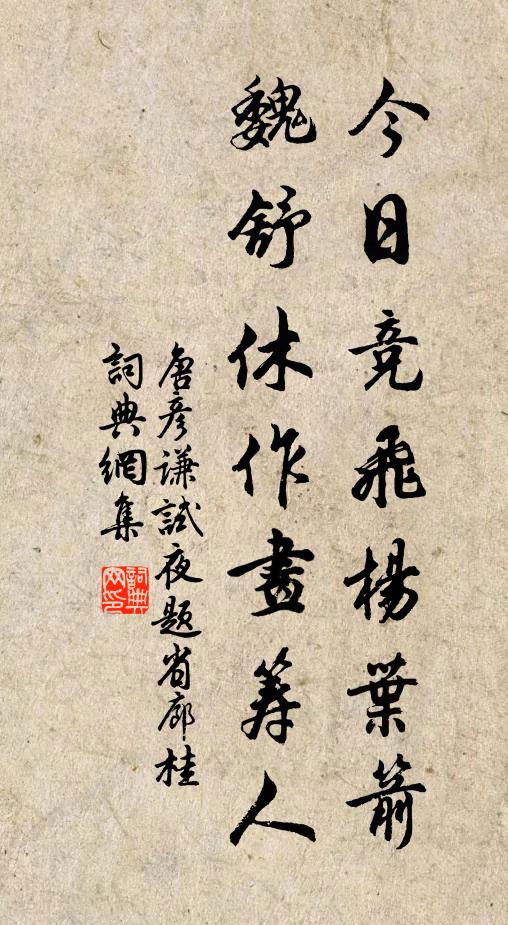 今日竞飛楊葉箭
魏舒休作畫筹人
唐彦谦試夜题省廊桂
詞典網集
詞典网印